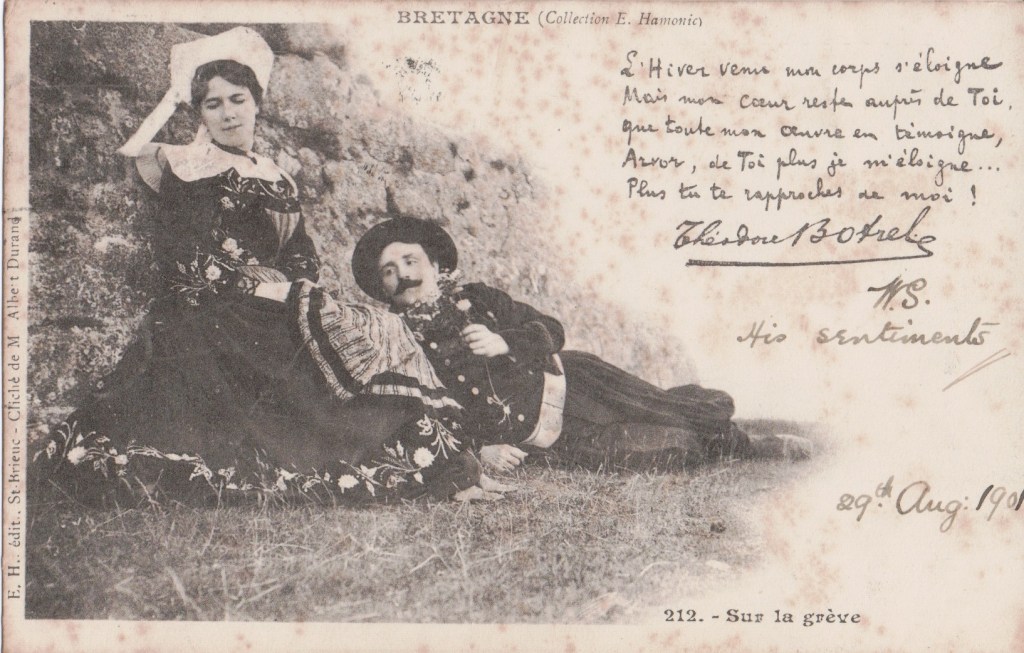 BRETAGNE (Collection E. Hamonic)
L'Hiver venu mon corps s'éloigne
Mais mon cœur reste auprès de Toi,
que toute mon œuvre en témoigne,
Arvor, de Toi plus je m'éloigne...
Plus tu te rapproches de moi !
Théodore Botrel
W.S.
His sentiments
29th Aug: 1901
212. - Sur la grève
E. H., édit., St-Brieuc - Cliché de M. Albert Durand